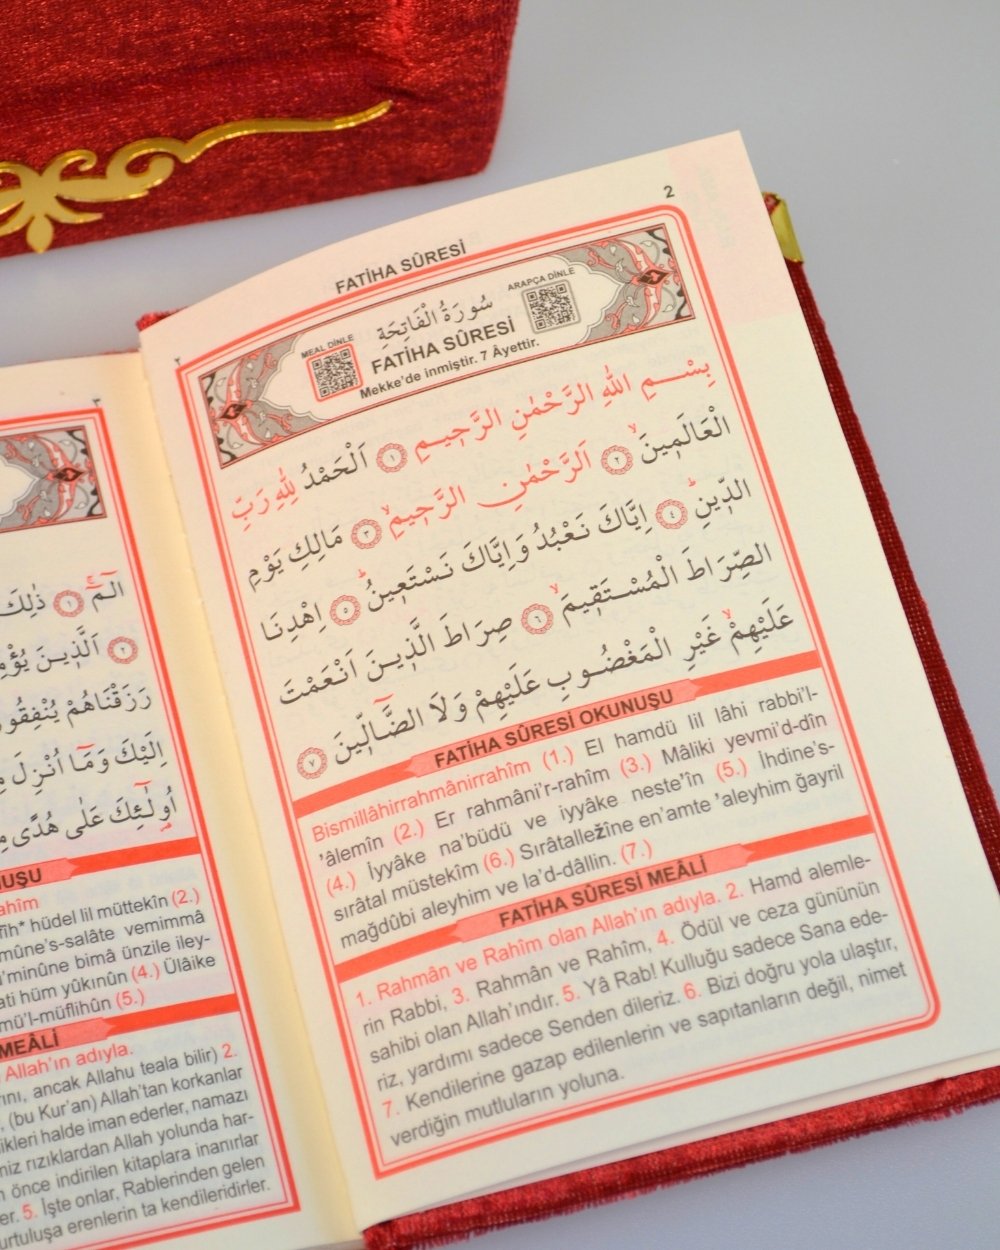 2
FATİHA SÛRESİ
٢
MEAL DİNLE
سُورَةُ الْفَاتِحَةِ
ARAPÇA DİNLE
FATİHA SÛRESİ
Mekke'de inmiştir. 7 Âyettir.
بِسْــــمِ اللّٰهِ الرَّحْمٰنِ الرَّحٖيــمِ ﴿١﴾ اَلْحَمْدُ لِلّٰهِ رَبِّ
الْعَالَمٖينَۙ ﴿٢﴾ اَلرَّحْمٰنِ الرَّحٖيمِۙ ﴿٣﴾ مَالِكِ يَوْمِ
الدّٖينِۜ ﴿٤﴾ اِيَّاكَ نَعْبُدُ وَاِيَّاكَ نَسْتَعٖينُۜ ﴿٥﴾ اِهْدِنَا
الصِّرَاطَ الْمُسْتَقٖيمَۙ ﴿٦﴾ صِرَاطَ الَّذٖينَ اَنْعَمْتَ
عَلَيْهِمْۙ غَيْرِ الْمَغْضُوبِ عَلَيْهِمْ وَلَا الضَّٓالّٖينَ ﴿٧﴾
FATİHA SÛRESİ OKUNUŞU
Bismillâhirrahmânirrahîm (1.) El hamdü lil lâhi rabbi'l-
'âlemîn (2.) Er rahmâni'r-rahîm (3.) Mâliki yevmi'd-dîn
(4.) İyyâke na'büdü ve iyyâke neste'în (5.) İhdine's-
sırâtal müstekîm (6.) Sırâtalležîne en'amte 'aleyhim ğayril
mağdûbi aleyhim ve la'd-dâllin. (7.)
FATİHA SÛRESİ MEÂLİ
1. Rahmân ve Rahîm olan Allah'ın adıyla. 2. Hamd alemle-
rin Rabbi, 3. Rahmân ve Rahîm, 4. Ödül ve ceza gününün
sahibi olan Allah'ındır. 5. Yâ Rab! Kulluğu sadece Sana ede-
riz, yardımı sadece Senden dileriz. 6. Bizi doğru yola ulaştır,
7. Kendilerine gazap edilenlerin ve sapıtanların değil, nimet
verdiğin mutluların yoluna.
٣
الٓمٓۚ ﴿١﴾ ذٰلِكَ
﴿٢﴾ اَلَّذٖينَ
رَزَقْنَاهُمْ
اِلَيْكَ وَمَٓا اُنْزِلَ
اُو۬لٰٓئِكَ عَلٰى هُدًى
hüdel lil müttekîn (2.)
salâte vemimmâ
bimâ ünzile iley-
hüm yûkınûn (4.) Ülâike
müflihûn (5.)
MEÂLİ
Allah'ın adıyla.
ancak Allahu teala bilir) 2.
(bu Kur'an) Allah'tan korkanlar
halde iman ederler, namazı
rızıklardan Allah yolunda har-
önce indirilen kitaplara inanırlar
5. İşte onlar, Rablerinden gelen
erenlerin ta kendileridirler.